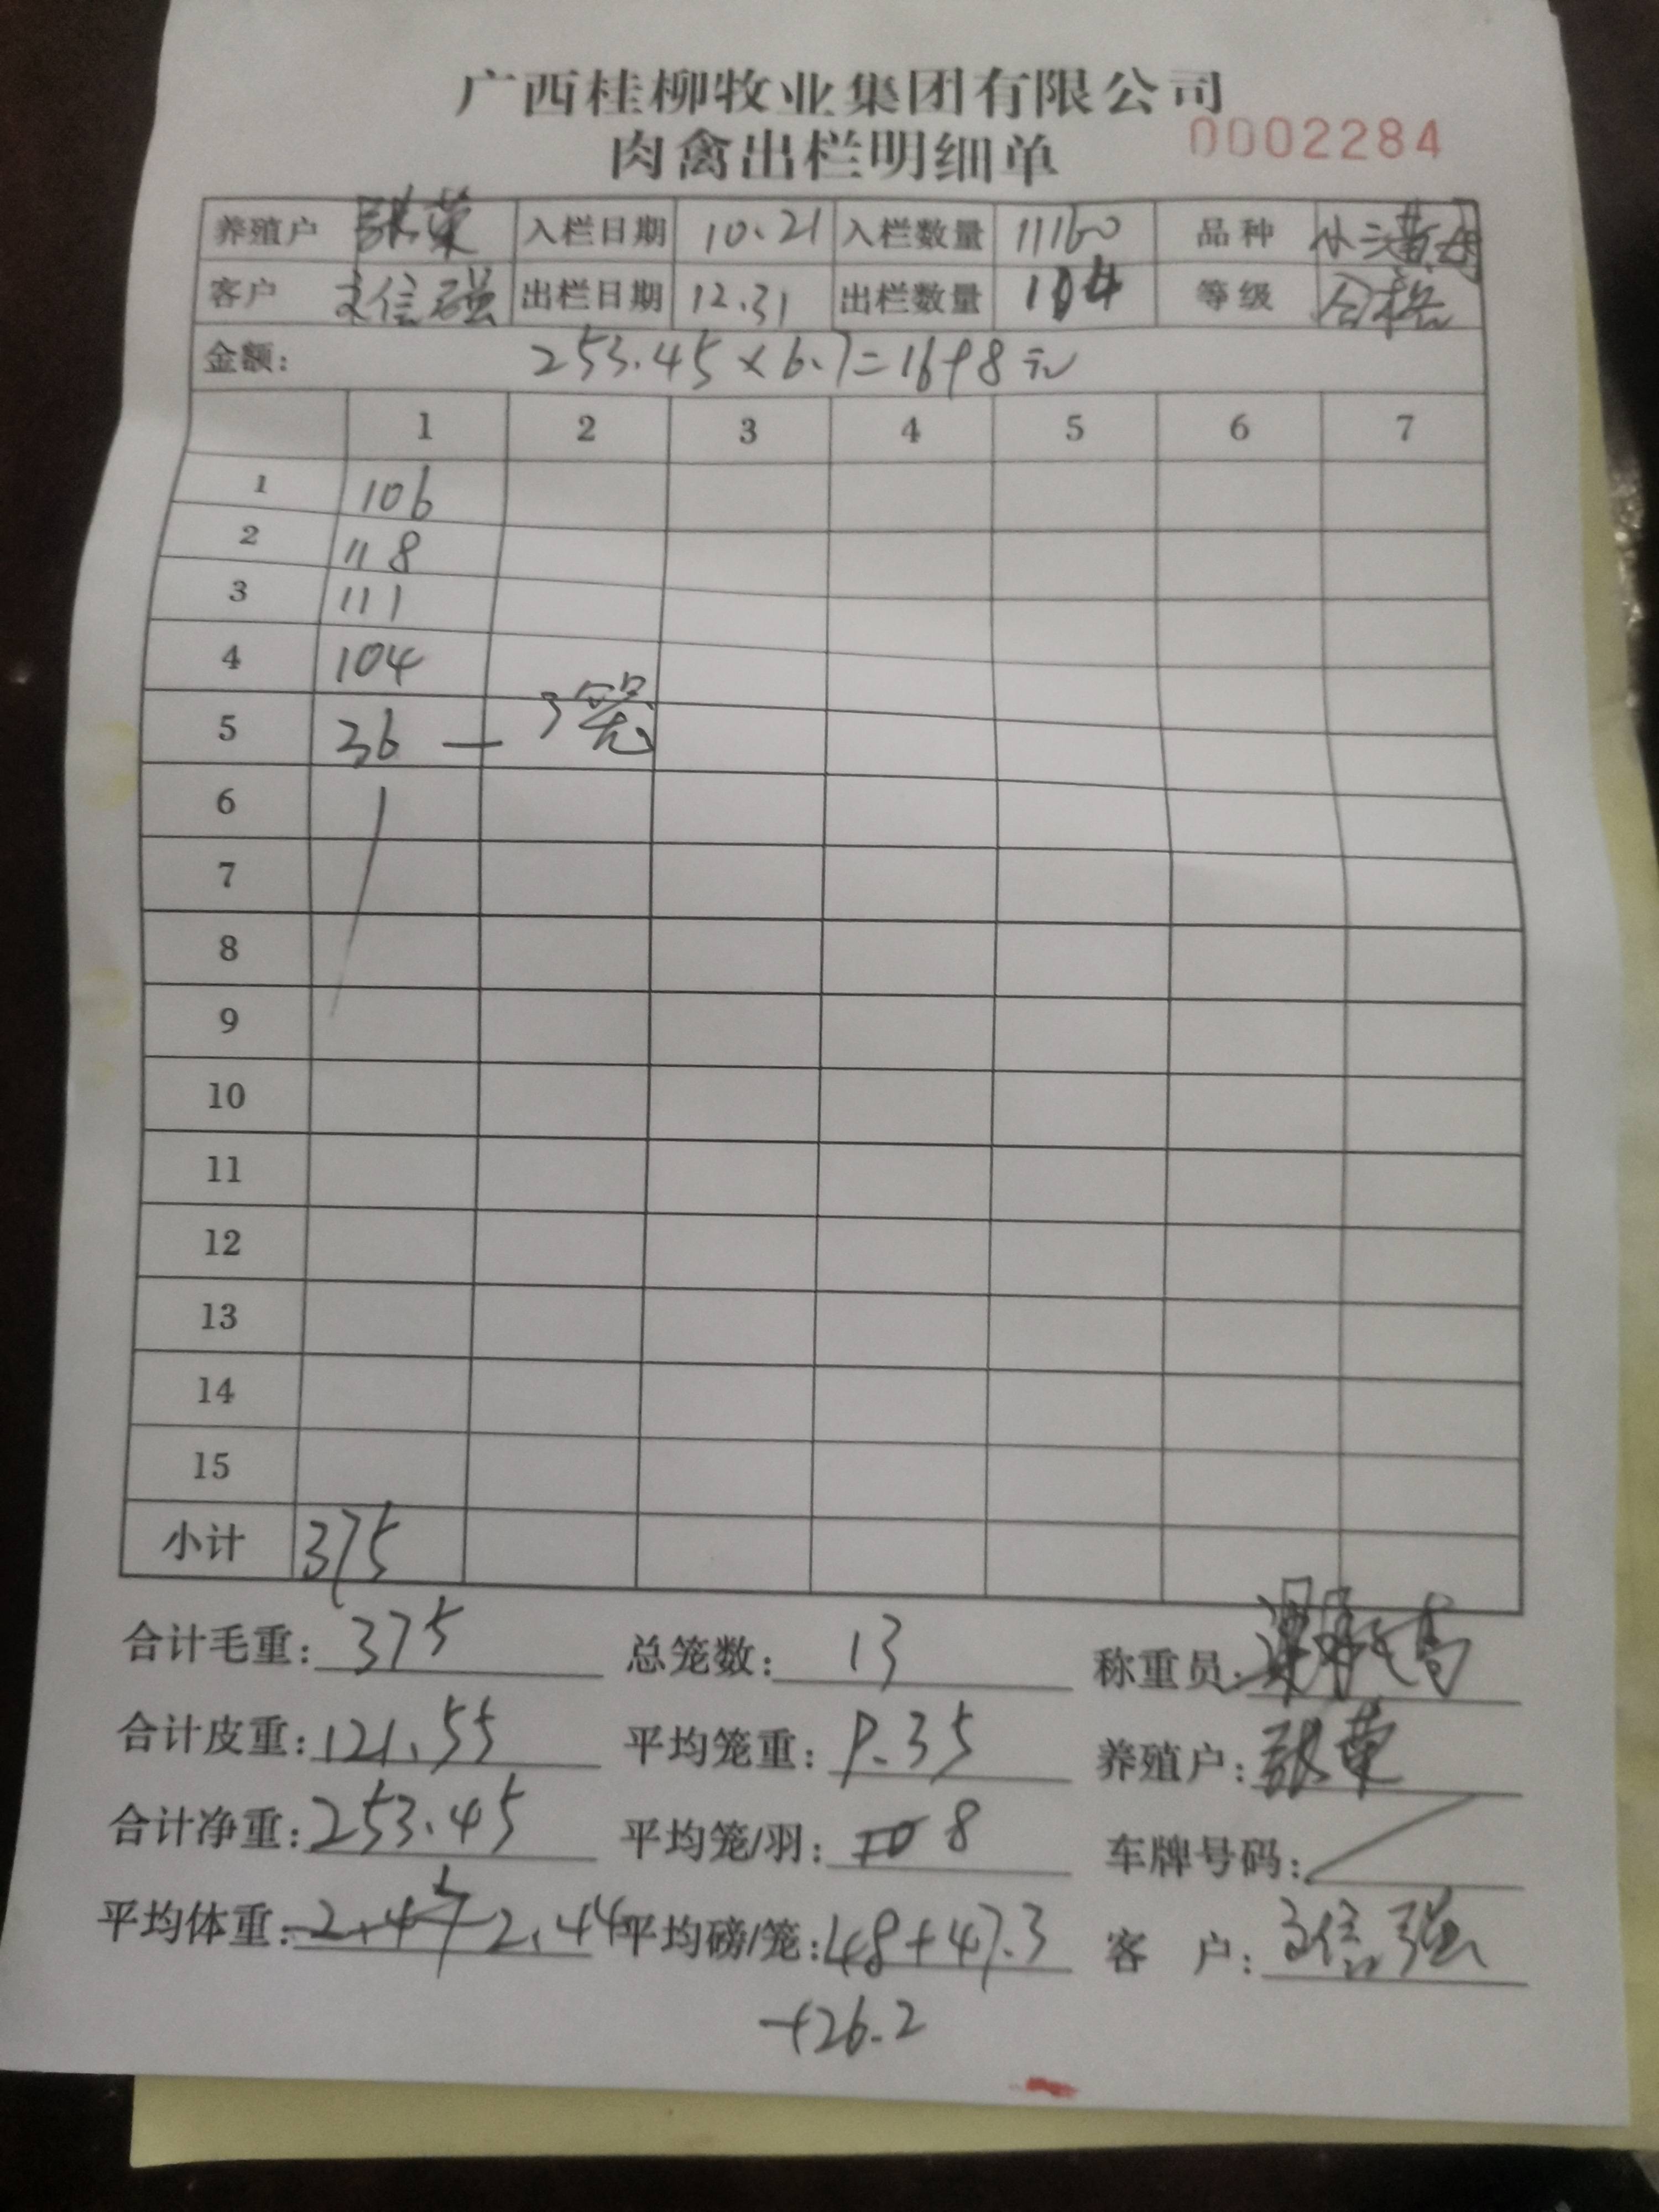 广西桂柳牧业集团有限公司
肉禽出栏明细单 0002284
养殖户 张荣 入栏日期 10.21 入栏数量 11160 品种
客户 文信强 出栏日期 12.31 出栏数量 104 等级 合格
金额: 253.45×6.7=1698元
1 2 3 4 5 6 7
1 106
2 118
3 111
4 104
5 36 — 3笼
6
7
8
9
10
11
12
13
14
15
小计 375
合计毛重: 375 总笼数: 13 称重员:
合计皮重: 121.55 平均笼重: 9.35 养殖户: 张荣
合计净重: 253.45 平均笼/羽: 8 车牌号码:
平均体重: 2.44 平均磅/笼: 48+47.3 客 户: 文信强
+26.2